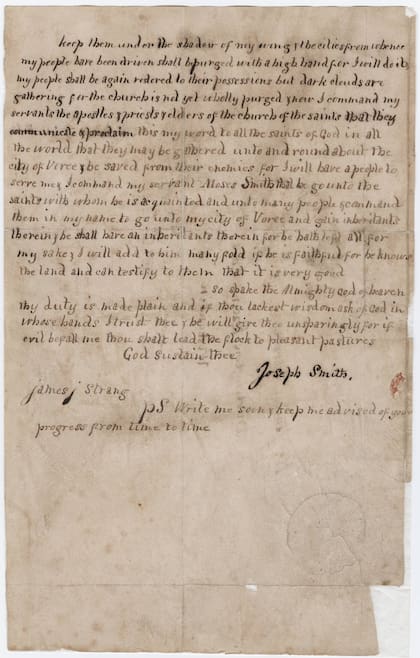 keep them under the shadow of my wing & the cities from whence
my people have been driven shall be purged with a high hand for I will do it &
my people shall be again restored to their possessions but dark clouds are
gathering for the church is not yet wholly purged & now I command my
servants the apostles & priests & elders of the church of the saints that they
communicate & proclaim this my word to all the saints of God in all
the world that they may be gathered unto and round about the
city of Voree & be saved from their enemies for I will have a people to
serve me & I command my servant Moses Smith that he go unto the
saints with whom he is aquainted and unto many people & command
them in my name to go unto my city of Voree and gain inheritants
therein & he shall have an inheritants therein for he hath left all for
my sake & I will add to him many fold if he is faithful for he knows
the land and can testify to them that it is very good
= so spake the Almighty God of heaven
thy duty is made plain and if thou lackest wisdom ask of God in
whose hands I trust thee & he will give thee unsparingly for if
evil befall me thou shalt lead the flock to pleasant pastures
God sustain thee
Joseph Smith.
James J Strang
PS Write me soon & keep me advised of your
progress from time to time